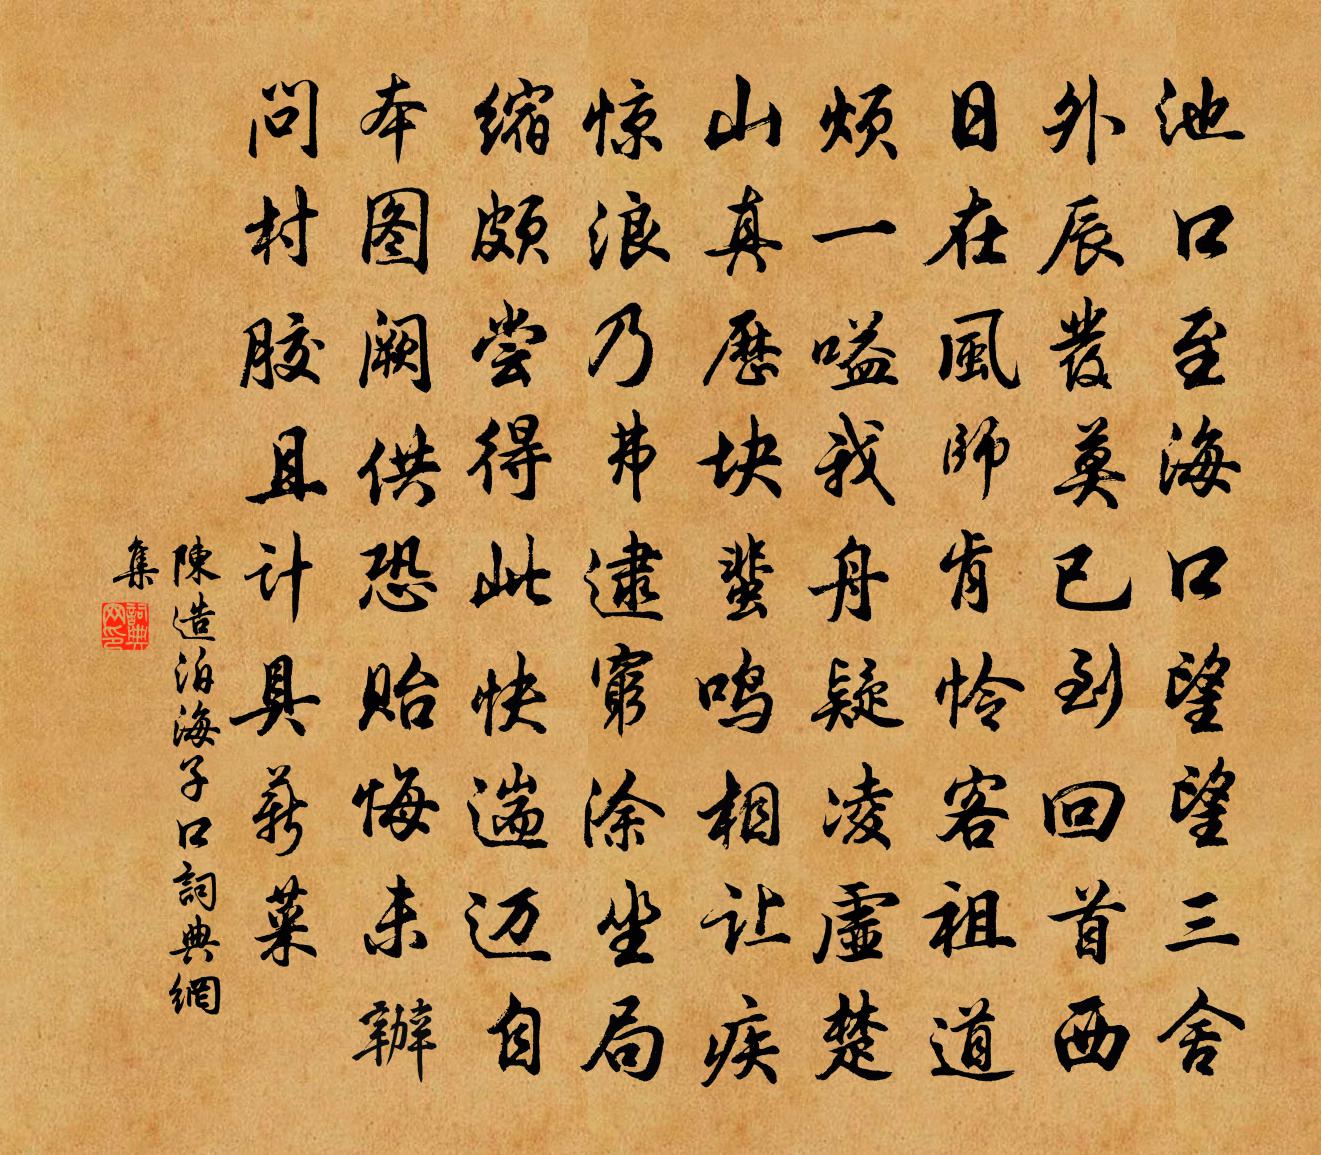 池口至海口望望三舍
外辰發莫已到回首西
日在風師肯怜客祖道
烦一嗑我舟疑凌虛楚
山真歷块蜚鸣相让疾
惊浪乃弗逮窮涂坐局
缩颇尝得此快遄迈自
本图阙供恐贻悔未辦
问村胶且计具薪菜
陳造泊海子口詞典網
集
詞典网印